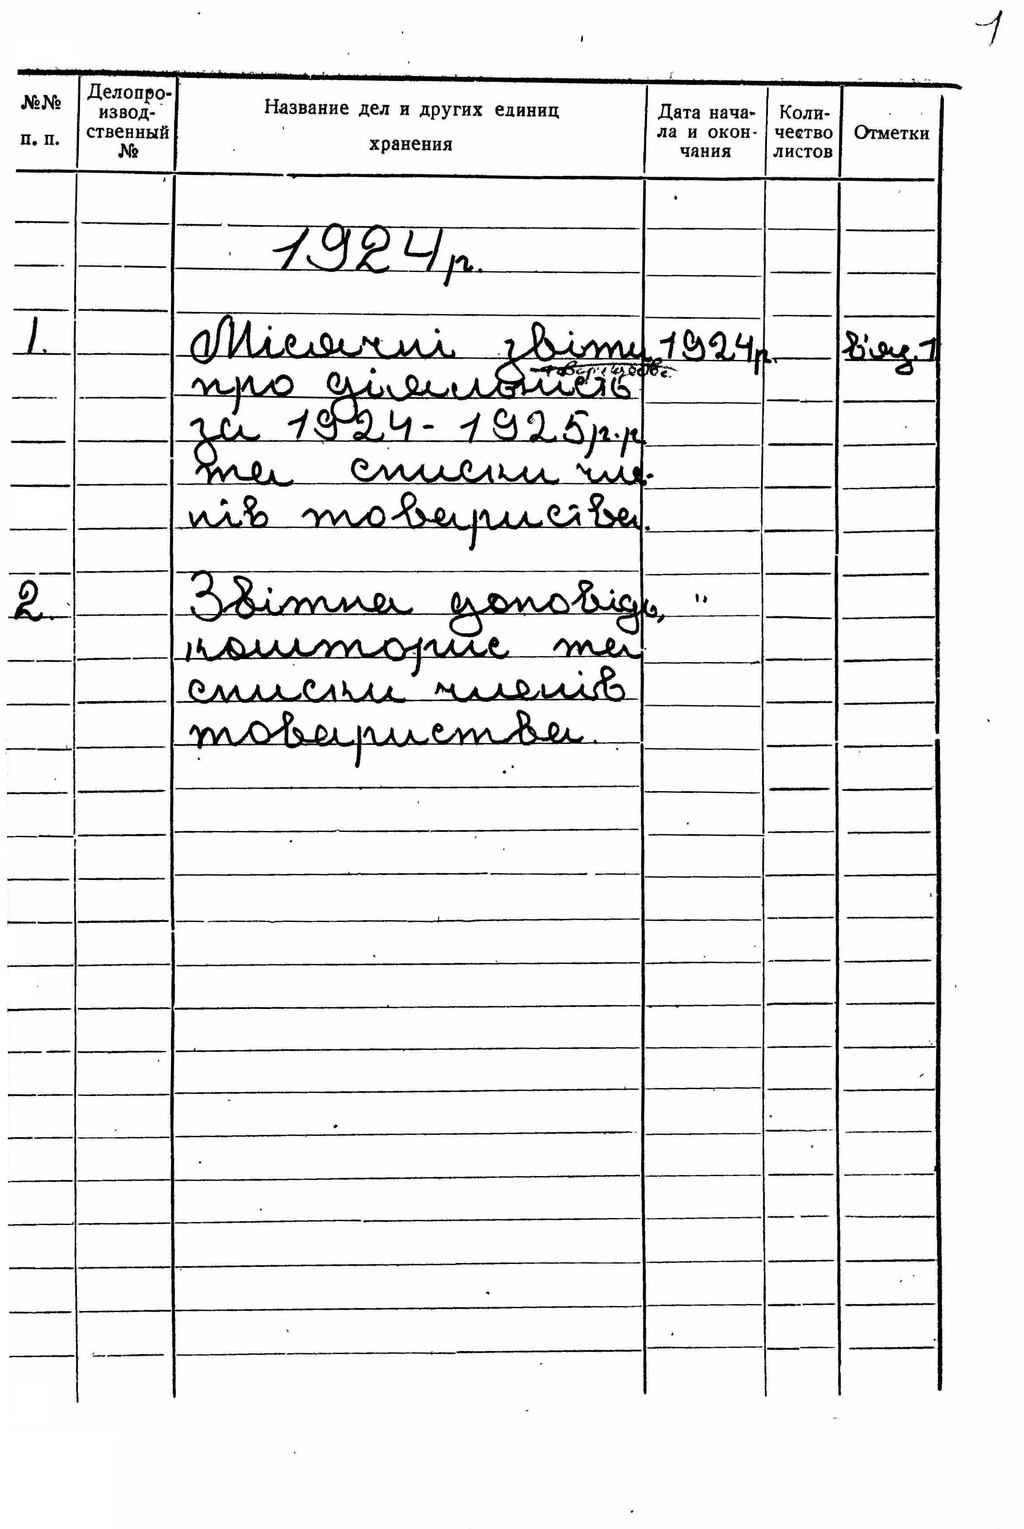 1
№№ п. п.
Делопро-
извод-
ственный
№
Название дел и других единиц
хранения
Дата нача-
ла и окон-
чания
Коли-
чество
листов
Отметки
1924 р.
1. Місячні звіти 1924 р. в'яз. 1
про діяльність
за 1924-1925 р.р.
та списки чле-
нів товариства.
2. Звітна доповідь, "
кошторис та
списки членів
товариства.